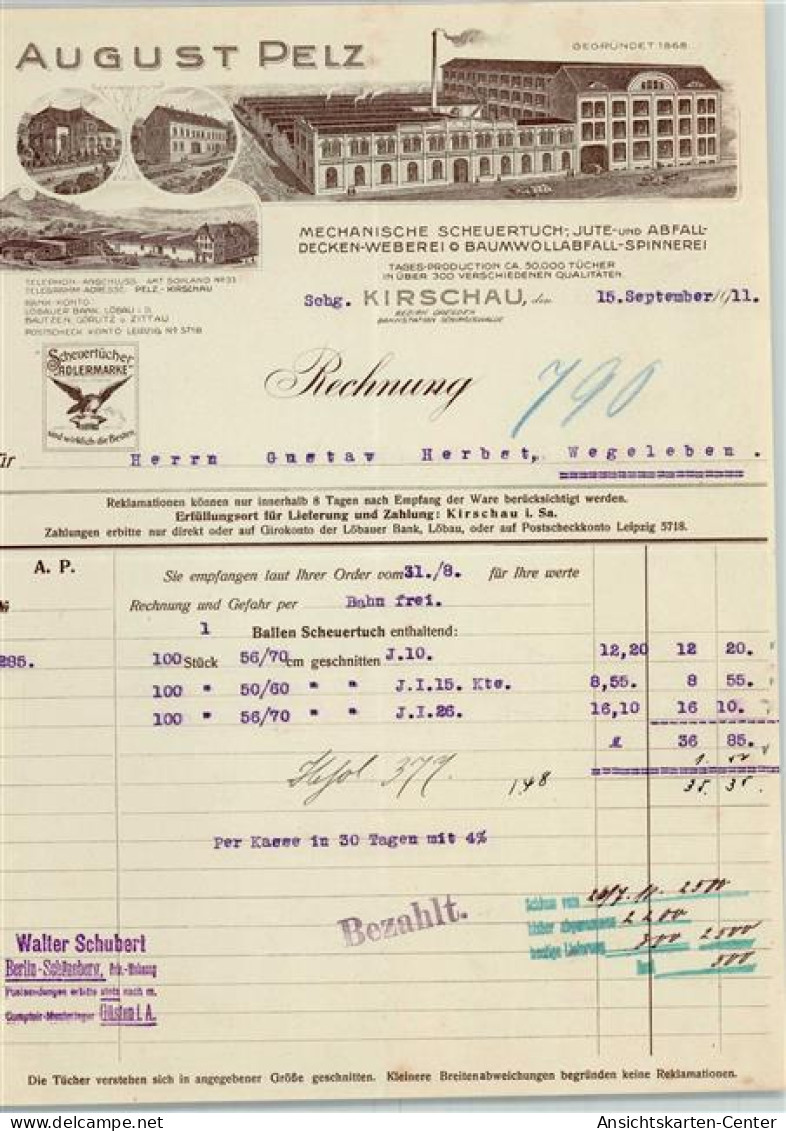 AUGUST PELZ
GEGRÜNDET 1868
MECHANISCHE SCHEUERTUCH-, JUTE- UND ABFALL-
DECKEN-WEBEREI BAUMWOLLABFALL-SPINNEREI
TAGES-PRODUCTION CA. 50,000 TÜCHER
IN ÜBER 300 VERSCHIEDENEN QUALITÄTEN.
TELEPHON-ANSCHLUSS: AMT SOHLAND Nº 33
TELEGRAMM-ADRESSE: PELZ-KIRSCHAU
BANK-KONTO:
LÖBAUER BANK, LÖBAU i. S.
BAUTZEN, GÖRLITZ u. ZITTAU
POSTSCHECK KONTO LEIPZIG Nº 5718
Schg. KIRSCHAU, den 15.September 11.
BEZIRK DRESDEN
BAHNSTATION SCHIRGISWALDE
Scheuertücher
"ADLERMARKE"
sind wirklich die Besten
Rechnung 790
für Herrn Gustav Herbst, Wegeleben.
Reklamationen können nur innerhalb 8 Tagen nach Empfang der Ware berücksichtigt werden.
Erfüllungsort für Lieferung und Zahlung: Kirschau i. Sa.
Zahlungen erbitte nur direkt oder auf Girokonto der Löbauer Bank, Löbau, oder auf Postscheckkonto Leipzig 5718.
A. P. Sie empfangen laut Ihrer Order vom 31./8. für Ihre werte
Rechnung und Gefahr per Bahn frei.
1 Ballen Scheuertuch enthaltend:
285. 100 Stück 56/70 cm geschnitten J.10. 12,20 12 20.
100 " 50/60 " " J.I.15. Kte. 8,55. 8 55.
100 " 56/70 " " J.I.26. 16,10 16 10.
36 85.
148 35. 35.
Per Kasse in 30 Tagen mit 4%
Bezahlt.
Schluss vom 2500
bisher abgenommen 2200
heutige Lieferung 300 2500
Rest 300
Walter Schubert
Berlin-Schöneberg, Priv.-Wohnung
Postsendungen erbitte stets nach m.
Comptoir-Musterlager Güsten i. A.
Die Tücher verstehen sich in angegebener Größe geschnitten. Kleinere Breitenabweichungen begründen keine Reklamationen.
Ansichtskarten-Center